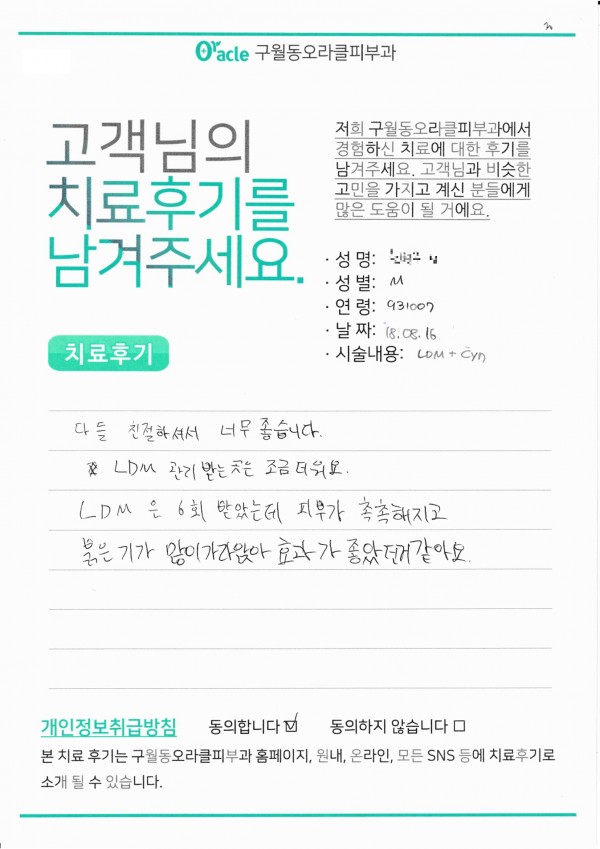 Oracle 구월동오라클피부과
고객님의
치료후기를
남겨주세요.
저희 구월동오라클피부과에서
경험하신 치료에 대한 후기를
남겨주세요. 고객님과 비슷한
고민을 가지고 계신 분들에게
많은 도움이 될 거에요.
· 성 명:
· 성 별: M
· 연 령: 931007
· 날 짜: 18.08.16.
· 시술내용: LDM + Cryn
치료후기
다들 친절하셔서 너무 좋습니다.
LDM 관리 받는 곳은 조금 더워요.
LDM 은 6회 받았는데 피부가 촉촉해지고
붉은기가 많이 가라앉아 효과가 좋았던거같아요.
개인정보취급방침 동의합니다 ☑ 동의하지 않습니다 ☐
본 치료 후기는 구월동오라클피부과 홈페이지, 원내, 온라인, 모든 SNS 등에 치료후기로
소개 될 수 있습니다.